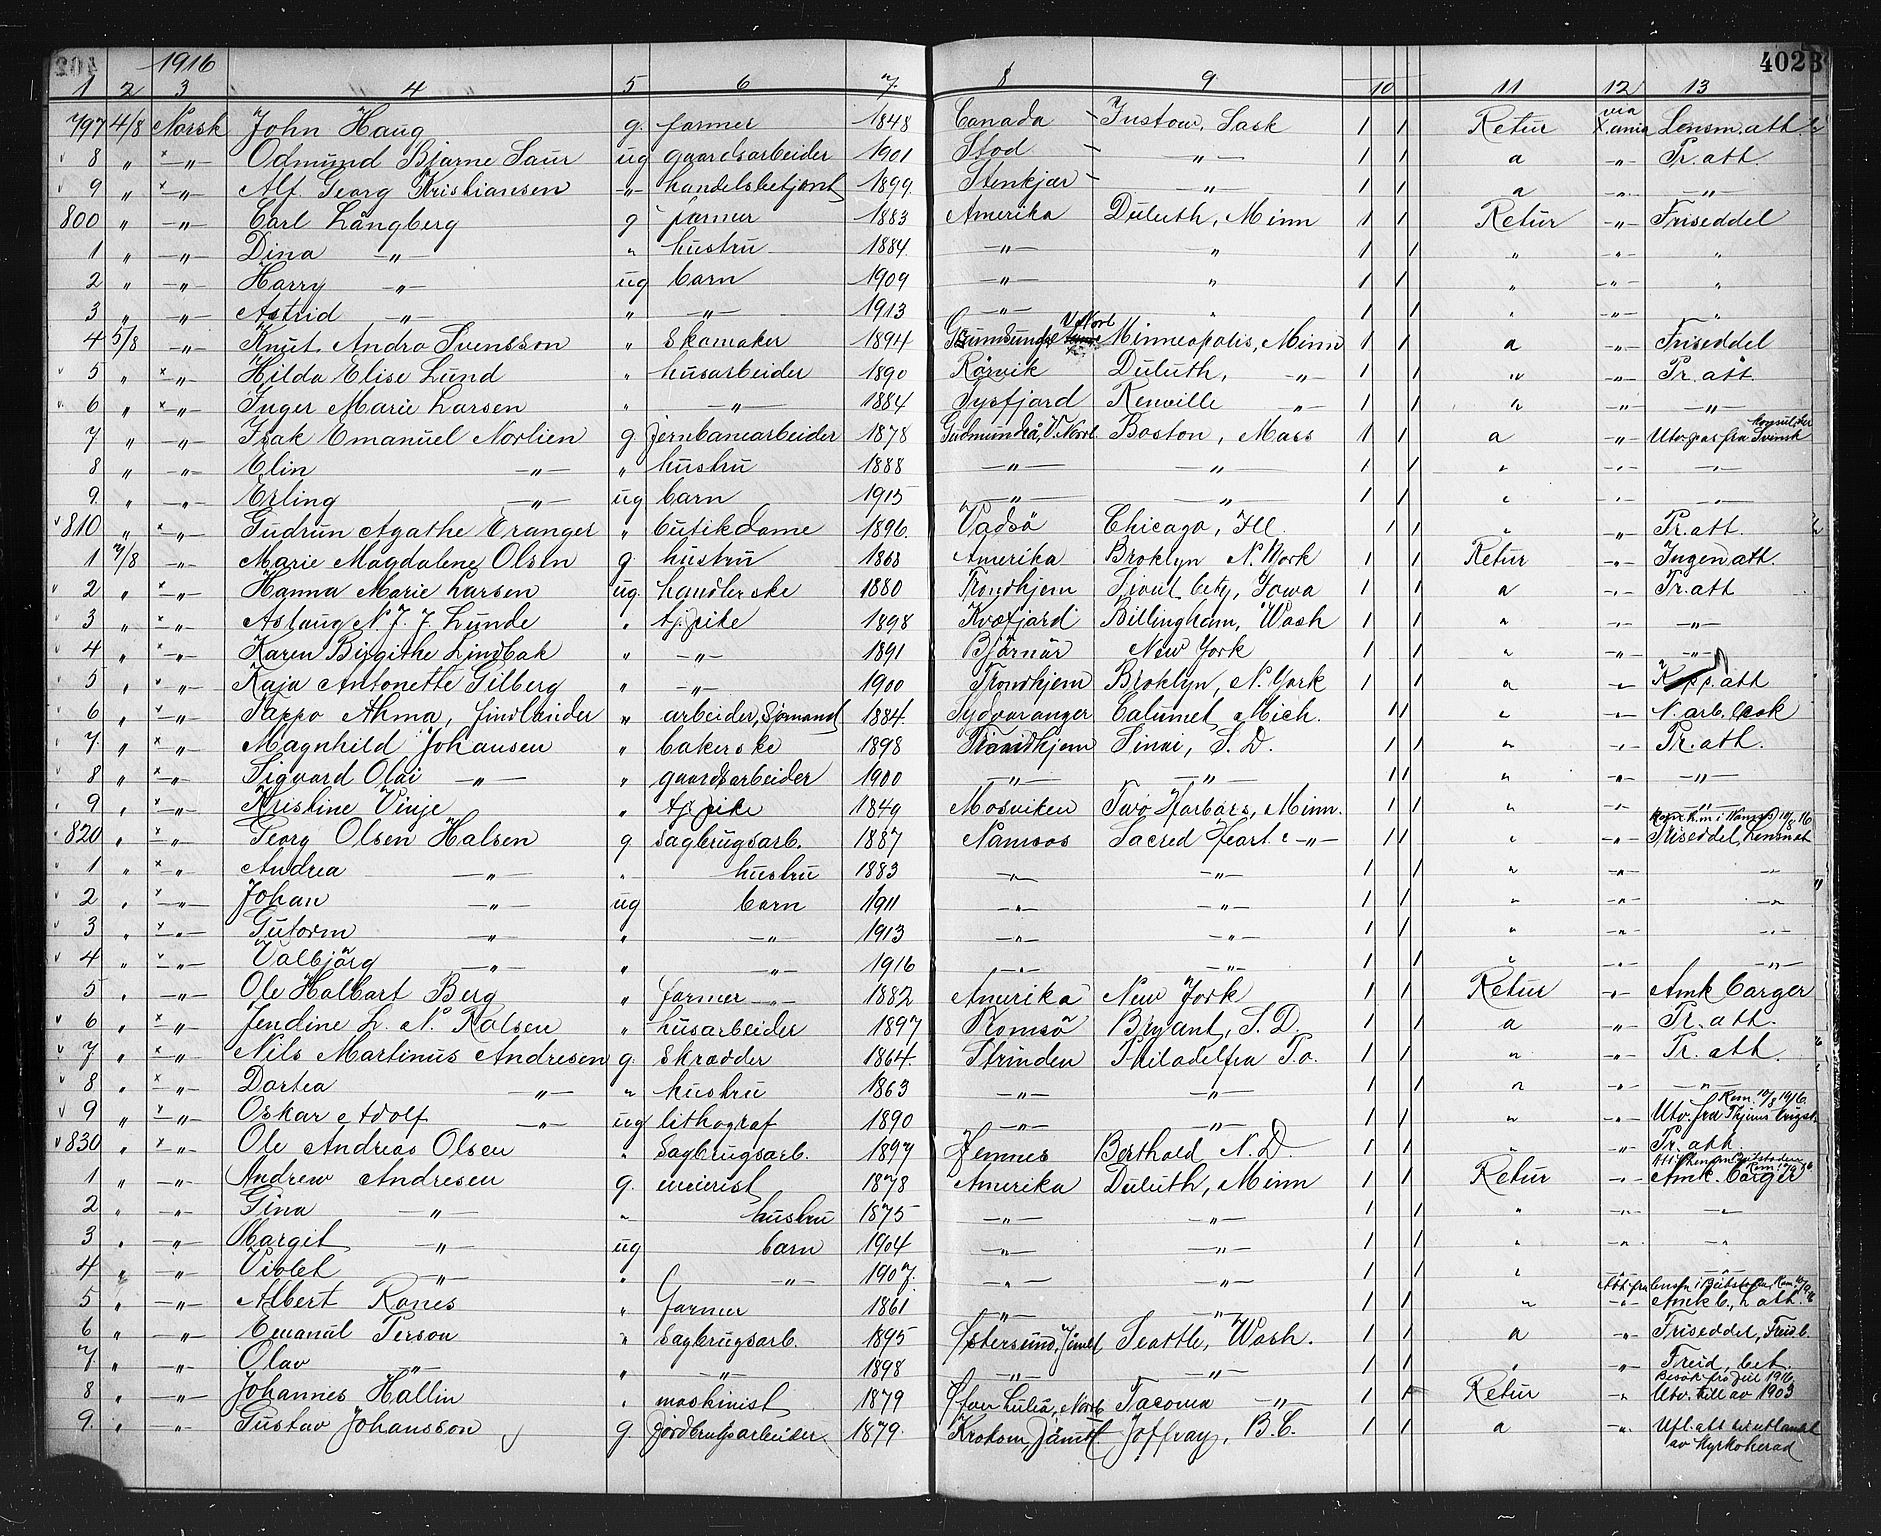 1916 4023
1 2 3 4 5 6 7 8 9 10 11 12 13
797 4/8 Norsk John Haug g. farmer 1848 Canada Sask 1 1 Retur via X.ania Lensm. att
8 " —"— Odmund Bjarne Saur ug gaardsarbeider 1901 Stod —"— 1 1 a —"— Pr. att
9 " —"— Alf. Georg Kristiansen —"— handelsbetjent 1899 Stenkjær " 1 1 a —"— —"—
800 " —"— Carl Långberg g farmer 1883 Amerika Duluth, Minn 1 1 Retur —"— Friseddel
1 " —"— Dina —"— " hustru 1884 —"— " 1 1 " —"— "
2 " —"— Harry —"— ug barn 1909 —"— " 1 1 " —"— "
3 " —"— Astrid —"— " —"— 1913 —"— " 1 1 " —"— "
4 5/8 —"— Knut Andro Svensson " Skomaker 1894 V. Norl Minneapolis, Minn 1 1 a —"— Friseddel
5 " —"— Hilda Elise Lund " husarbeider 1890 Rörvik Duluth, —"— 1 1 " —"— Pr. att.
6 " —"— Inger Marie Larsen " —"— 1884 Tysfjord Renville —"— 1 1 " —"— —"—
7 " —"— Isak Emanuel Norlien g jernbanearbeider 1878 Gudmundrå, V. Norl. Boston, Mass 1 1 a " Utv. pas fra Svensk
8 " —"— Elin —"— " hustru 1888 —"— —"— 1 1 " —"— —"—
9. " —"— Erling —"— ug barn 1915 —"— —"— 1 1 " —"— —"—
810 " —"— Gudrun Agathe Eranger " butikdame 1896. Vadsö Chicago, Ill. 1 1 " —"— Pr. att.
1 7/8 —"— Marie Magdalene Olsen g. hustru 1868 Amerika Broklyn N. York 1 1 Retur —"— Ingen att.
2 " —"— Hanna Marie Larsen ug. handlerske 1880 Trondhjem Sioux City, Iowa 1 1 a —"— Pr. att
3 " —"— Aslaug N. J. J. Lunde " tj. pike 1898 Kvæfjord Billingham, Wash 1 1 " —"— —"—
4 " —"— Karen Birgithe Lindbak " —"— 1891 Bjarnär New York 1 1 " —"— —"—
5 " —"— Kaja Antonette Gilberg " —"— 1900 Trondhjem Broklyn, N. York 1 1 a —"— att
6 " —"— Sappo Ahma, finlænder " arbeider, Sjömand 1884. Sydvaranger Calumet, Mich. 1 1 " —"— N. arb. bok
7 " —"— Magnhild Johansen " bakerske 1898 Trondhjem Sinai, S. D. 1 1 " —"— Pr. att.
8 " —"— Sigvard Olai —"— " gaardsarbeider 1900 —"— —"— 1 1 " —"— —"—
9 " —"— Kristine Vinje " tj. pike 1849 Mosviken Two Harbors, Minn. 1 1 " —"— —"—
820 " —"— Georg Olsen Halsen g sagbrugsarb. 1887 Namsos Sacred Heart —"— 1 1 " —"— Friseddel,
1 " —"— Andrea —"— " hustru 1883 —"— —"— 1 1 " —"— —"—
2 " —"— Johan —"— ug barn 1911 —"— —"— 1 1 " —"— —"—
3 " —"— Gutorm —"— " —"— 1913 —"— —"— 1 1 " —"— —"—
4 " —"— Valbjörg —"— " —"— 1916 —"— —"— 1 1 " —"— —"—
5 " —"— Ole Halbart Berg " farmer 1882 Amerika New York 1 1 Retur —"— Amk borger
6 " —"— Jendine L. N. Kalsen " husarbeider 1897 Romsö Bryant, S. D. 1 1 a —"— Pr. att.
7 " —"— Nils Martinus Andresen g. Skrædder 1864. Strinden Philadelfia Pa. 1 1 " —"— Pr. att.
8 " —"— Dortea —"— " hustru 1863 —"— —"— 1 1 " —"— —"—
9 " —"— Oskar Adolf —"— ug lithograf 1890 —"— —"— 1 1 " —"— Utv. fra Thjems
830 " —"— Ole Andreas Olsen " Sagbrugsarb. 1897 Femnes Berthold N. D. 1 1 " —"— Pr. att.
1 " —"— Andrew Andresen g. meierist 1878 Amerika Duluth, Minn 1 1 Retur —"— Amk. borger
2 " —"— Gina —"— " hustru 1875 —"— —"— 1 1 " —"— —"—
3 " —"— Margit —"— ug barn 1904 —"— —"— 1 1 " —"— —"—
4 " —"— Violet —"— " —"— 1907. —"— —"— 1 1 " —"— —"—
5 " —"— Albert Ranes " farmer 1861 —"— —"— 1 1 " —"— Amk b., L att.
6 " —"— Emanül Person " Sagbrugsarb. 1895 Östersund, Jämtl Seattle, Wash. 1 1 a —"— Friseddel,
7 " —"— Olav —"— " —"— 1898 —"— —"— 1 1 " —"— bet.
8 " —"— Johannes Hallin " maskinist 1879 Över Luleå, Norb Tacoma —"— 1 1 Retur —"— Utv. till av 1903
9. " —"— Gustav Johansson g jordbruksarbeider 1879. Krokom Jämtl. Joffray, B. C. 1 1 a —"— Ufl. att til utlandet
av Kyrkoherad